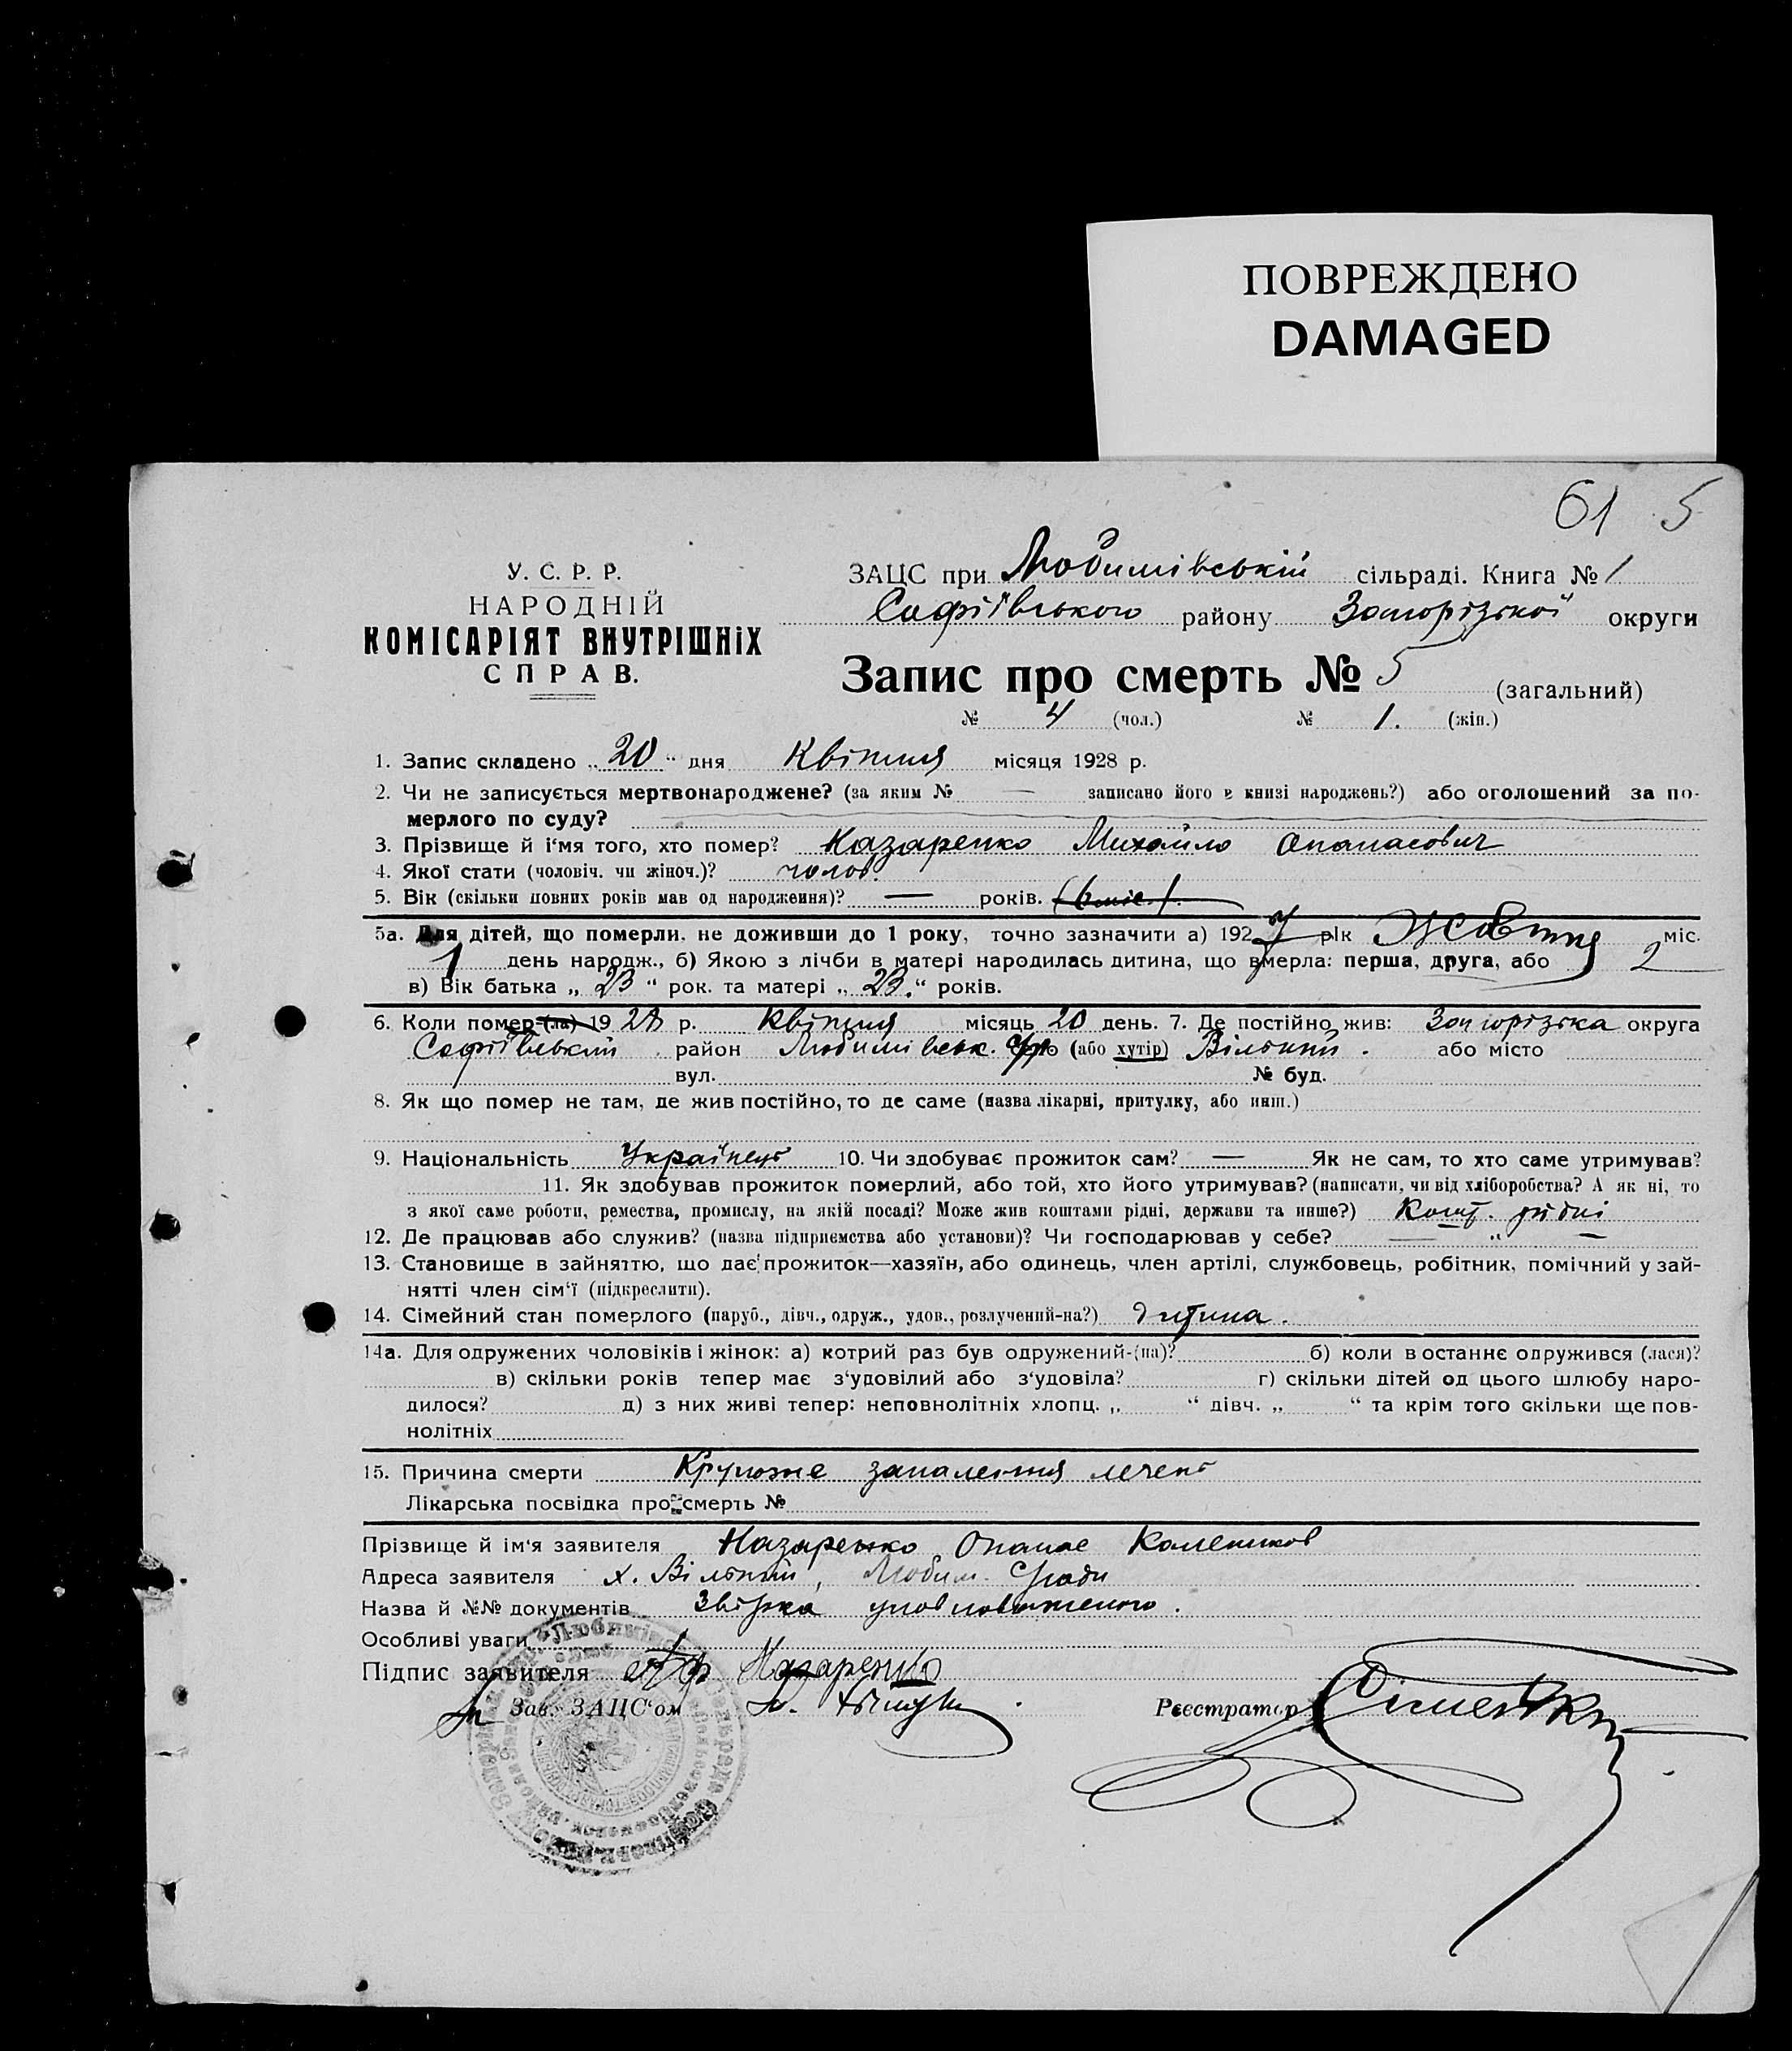 ПОВРЕЖДЕНО
DAMAGED
61 5
У. С. Р. Р.
НАРОДНІЙ
КОМІСАРІЯТ ВНУТРІШНІХ
СПРАВ.
ЗАЦС при Любимівській сільраді. Книга № 1
Софіївського району Запорізької округи
Запис про смерть № 5 (загальний)
№ 4 (чол.) № 1. (жін.)
1. Запис складено „ 20 “ дня Квітня місяця 1928 р.
2. Чи не записується мертвонароджене? (за яким № — записано його в книзі народжень?) або оголошений за по-
мерлого по суду?
3. Прізвище й і‘мя того, хто помер? Назаренко Михайло Опанасович
4. Якої стати (чоловіч. чи жіноч.)? чолов.
5. Вік (скільки повних років мав од народження)? — років. (6 міс.).
5а. Для дітей, що померли, не доживши до 1 року, точно зазначити а) 1927 рік Жовтня міс.
1 день народж., б) Якою з лічби в матері народилась дитина, що вмерла: перша, друга, або 2
в) Вік батька „ 23 “ рок. та матері „ 23. “ років.
6. Коли помер (ла) 1928 р. Квітня місяць 20 день. 7. Де постійно жив: Запорізька округа
Софіївський район Любимівськ. с/р (або хутір) Вільний . або місто
вул. № буд.
8. Як що помер не там, де жив постійно, то де саме (назва лікарні, притулку, або инш.)
9. Національність Українець 10. Чи здобуває прожиток сам? — Як не сам, то хто саме утримував?
11. Як здобував прожиток померлий, або той, хто його утримував? (написати, чи від хліборобства? А як ні, то
з якої саме роботи, ремества, промислу, на якій посаді? Може жив коштами рідні, держави та инше?) Кошт. рідні
12. Де працював або служив? (назва підприємства або установи)? Чи господарював у себе? — „ —
13. Становище в зайняттю, що дає прожиток—хазяїн, або одинець, член артілі, службовець, робітник, помічний у зай-
нятті член сім‘ї (підкреслити).
14. Сімейний стан померлого (паруб., дівч., одруж., удов., розлучений-на?) дитина.
14а. Для одружених чоловіків і жінок: а) котрий раз був одружений-(на)? б) коли в останнє одружився (лася)?
в) скільки років тепер має з‘удовілий або з‘удовіла? г) скільки дітей од цього шлюбу наро-
дилося? д) з них живі тепер: неповнолітніх хлопц. „ “ дівч. „ “ та крім того скільки ще пов-
нолітніх
15. Причина смерти Крупозне запалення легень
Лікарська посвідка про смерть №
Прізвище й ім‘я заявителя Назаренко Опанас Калеників
Адреса заявителя х. Вільний, Любим. С/ради
Назва й №№ документів Звірка уповноваженого.
Особливі уваги
Підпис заявителя Назаренко
Зав. ЗАЦС‘ом
Реєстратор